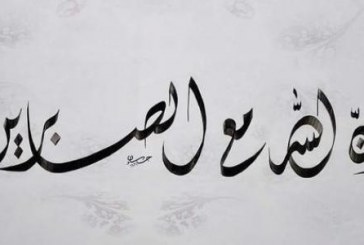 نّ الله مع الصابرين